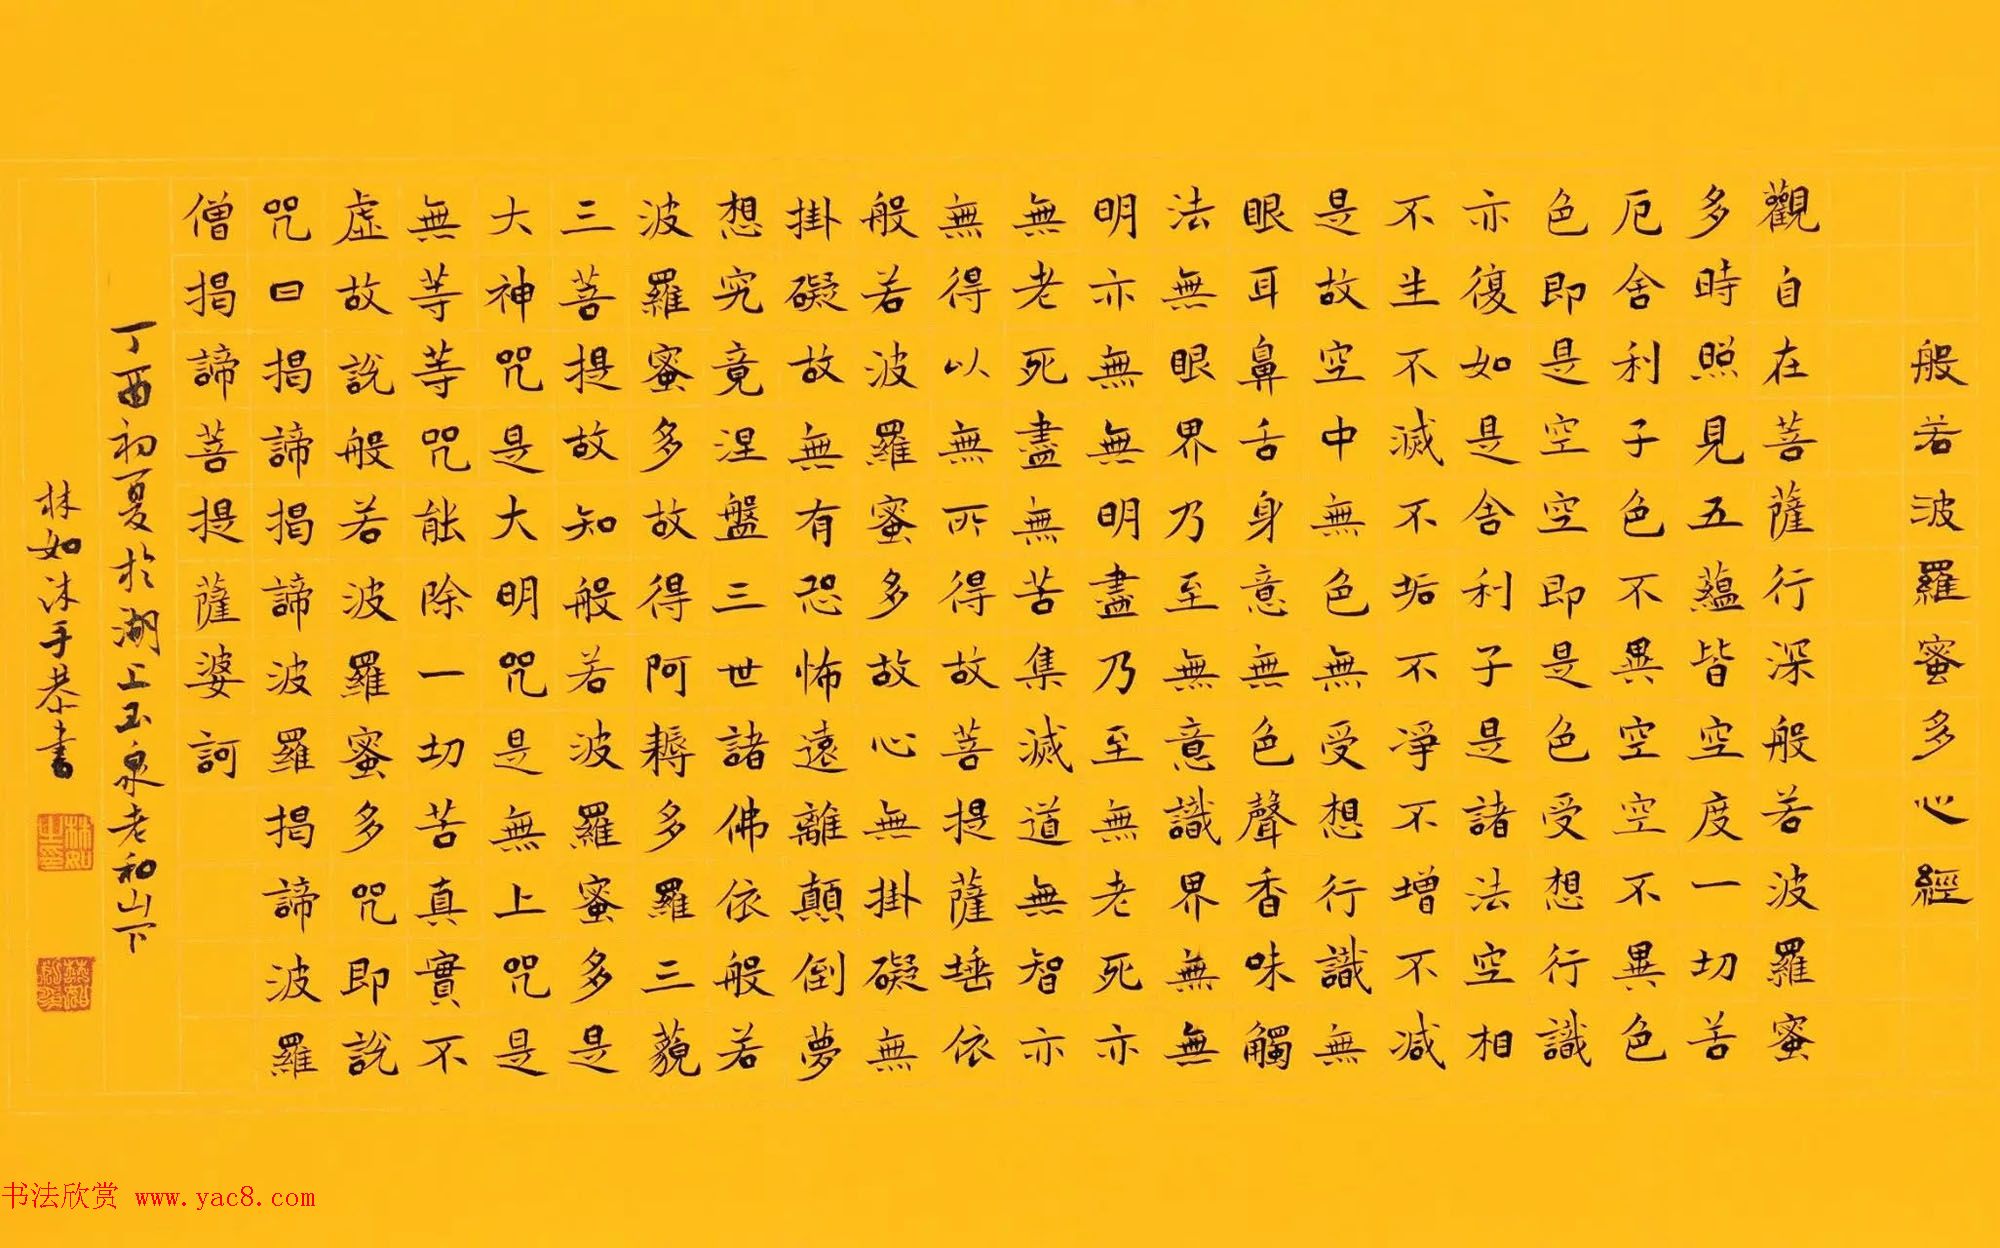 般若波羅蜜多心經
觀自在菩薩行深般若波羅蜜
多時照見五蘊皆空度一切苦
厄舍利子色不異空空不異色
色即是空空即是色受想行識
亦復如是舍利子是諸法空相
不生不滅不垢不淨不增不減
是故空中無色無受想行識無
眼耳鼻舌身意無色聲香味觸
法無眼界乃至無意識界無無
明亦無無明盡乃至無老死亦
無老死盡無苦集滅道無智亦
無得以無所得故菩提薩埵依
般若波羅蜜多故心無掛礙無
掛礙故無有恐怖遠離顛倒夢
想究竟涅盤三世諸佛依般若
波羅蜜多故得阿耨多羅三藐
三菩提故知般若波羅蜜多是
大神咒是大明咒是無上咒是
無等等咒能除一切苦真實不
虛故說般若波羅蜜多咒即說
咒曰揭諦揭諦波羅揭諦波羅
僧揭諦菩提薩婆訶
丁酉初夏於湖上玉泉老和山下
林如沐手恭書
林如之印
书法欣赏 www.yac8.com